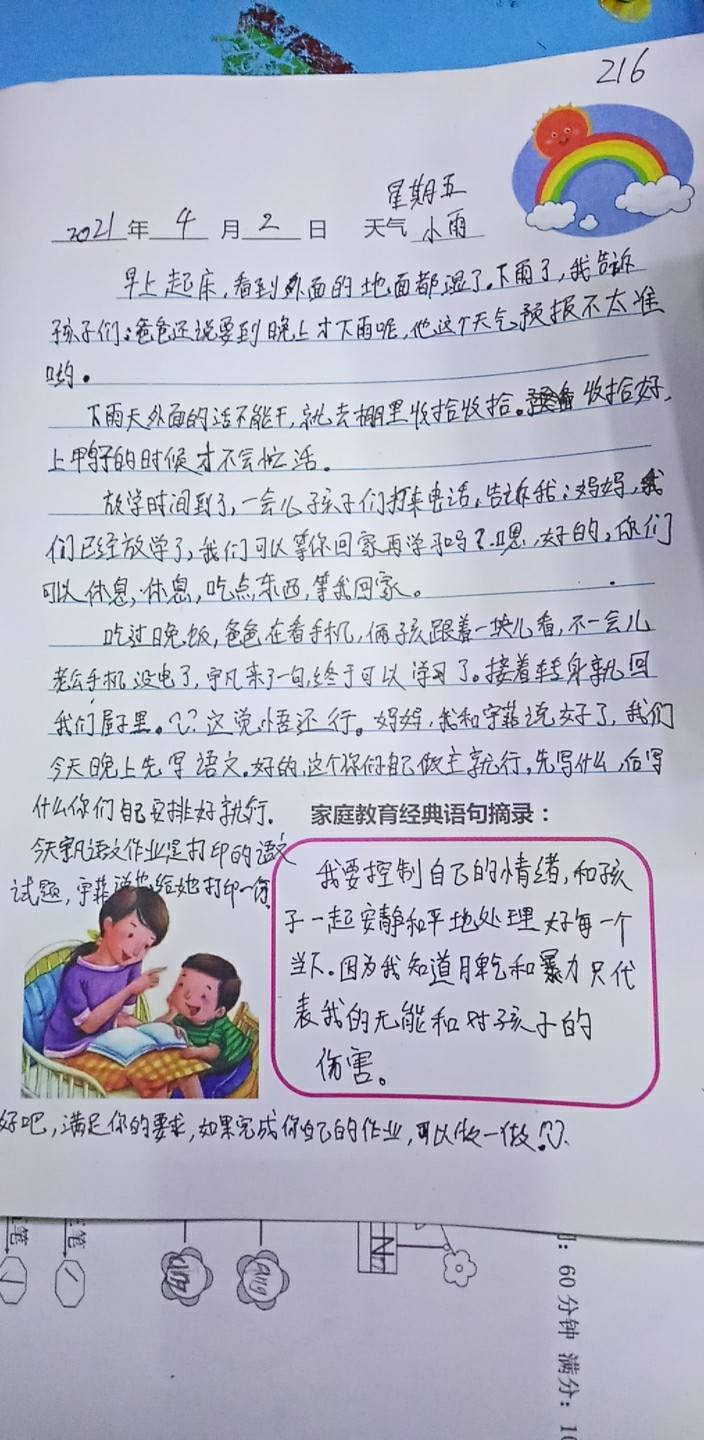 216
星期五
2021年 4 月 2 日 天气 小雨
早上起床,看到外面的地面都湿了。下雨了,我告诉
孩子们:爸爸还说要到晚上才下雨呢,他这个天气预报不太准
哟。
下雨天外面的活不能干,就去棚里收拾收拾。收拾好,
上鸭子的时候才不会忙活。
放学时间到了,一会儿孩子们打来电话,告诉我:妈妈,我
们已经放学了,我们可以等你回家再学习吗?嗯,好的,你们
可以休息,休息,吃点东西,等我回家。
吃过晚饭,爸爸在看手机,俩孩跟着一块儿看,不一会儿
老公手机没电了,宇凡来了一句,终于可以学习了。接着转身就回
我们屋子里。这觉悟还行。妈妈,我和宇菲说好了,我们
今天晚上先写语文。好的,这个你们自己做主就行,先写什么,后写
什么你们自己安排好就行。
家庭教育经典语句摘录:
今天宇凡语文作业是打印的语文
试题,宇菲说也给她打印一份
我要控制自己的情绪,和孩
子一起安静和平地处理好每一个
当下。因为我知道脾气和暴力只代
表我的无能和对孩子的
伤害。
好吧,满足你的要求,如果完成你自己的作业,可以做一做
笔
笔
60 分钟 满分: